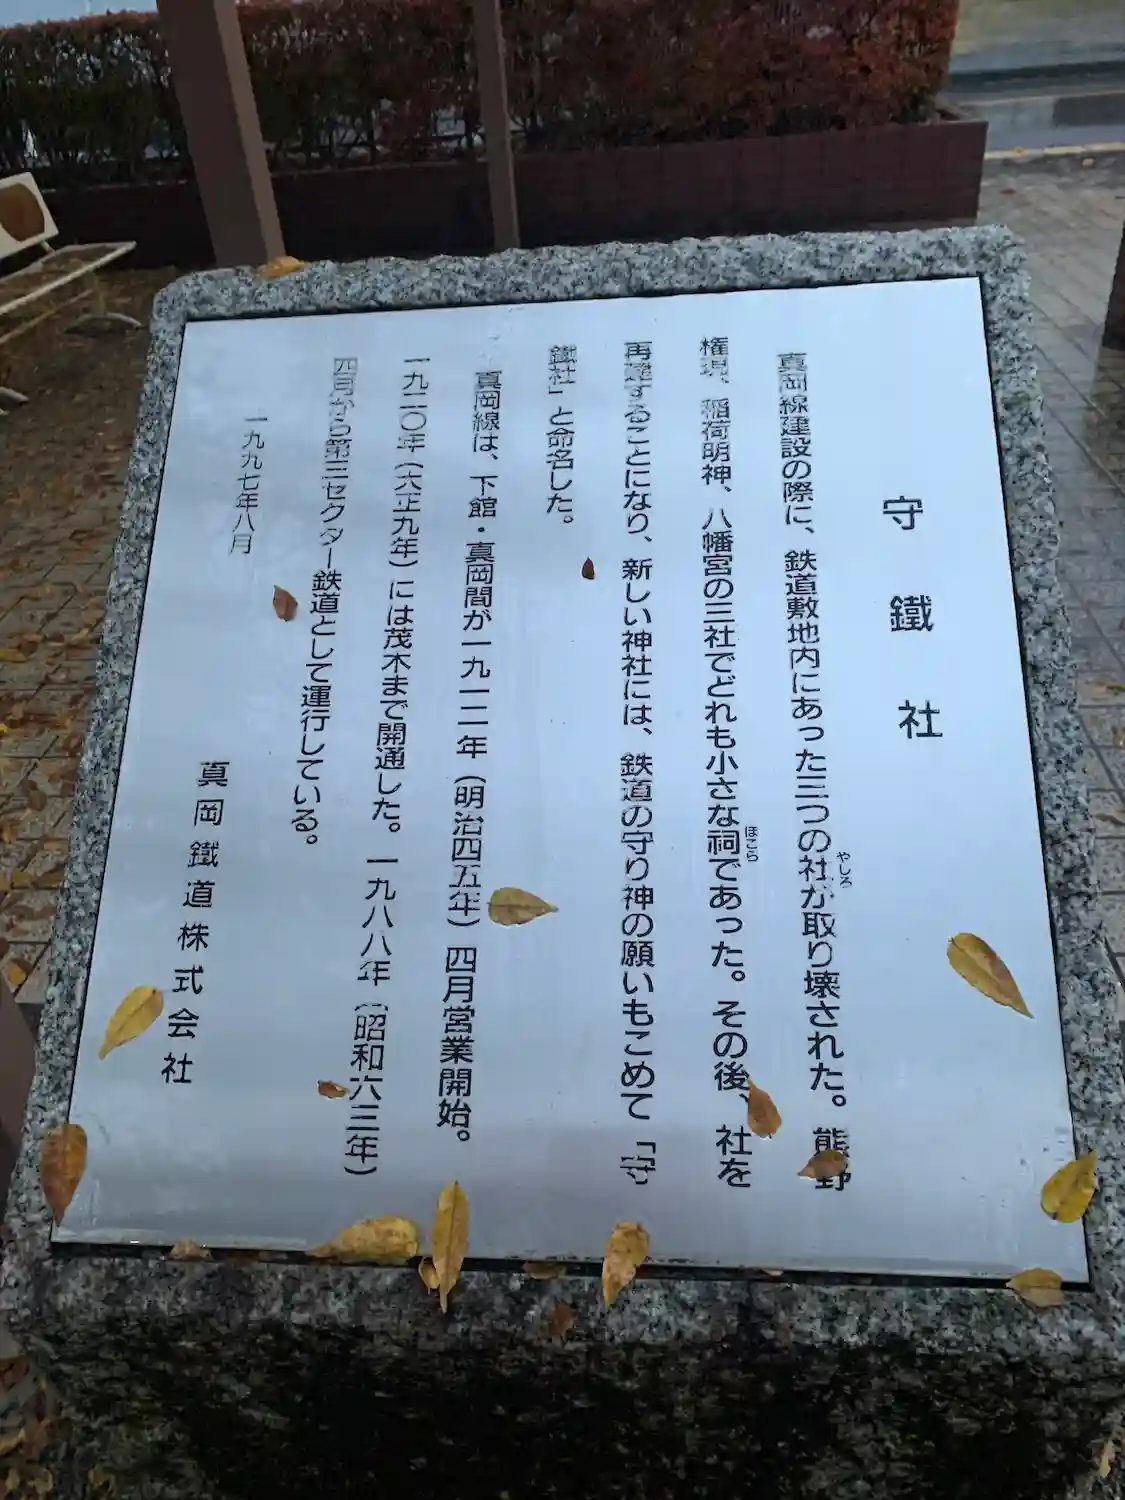 守鐵社
真岡線建設の際に、鉄道敷地内にあった三つの社が取り壊された。熊野
やしろ
権現、稲荷明神、八幡宮の三社でどれも小さな祠であった。その後、社を
ほこら
再建することになり、新しい神社には、鉄道の守り神の願いもこめて「守
鐵社」と命名した。
真岡線は、下館・真岡間が一九一二年（明治四五年）四月営業開始。
一九二〇年（大正九年）には茂木まで開通した。一九八八年（昭和六三年）
四月から第三セクター鉄道として運行している。
一九九七年八月
真岡鐵道株式会社